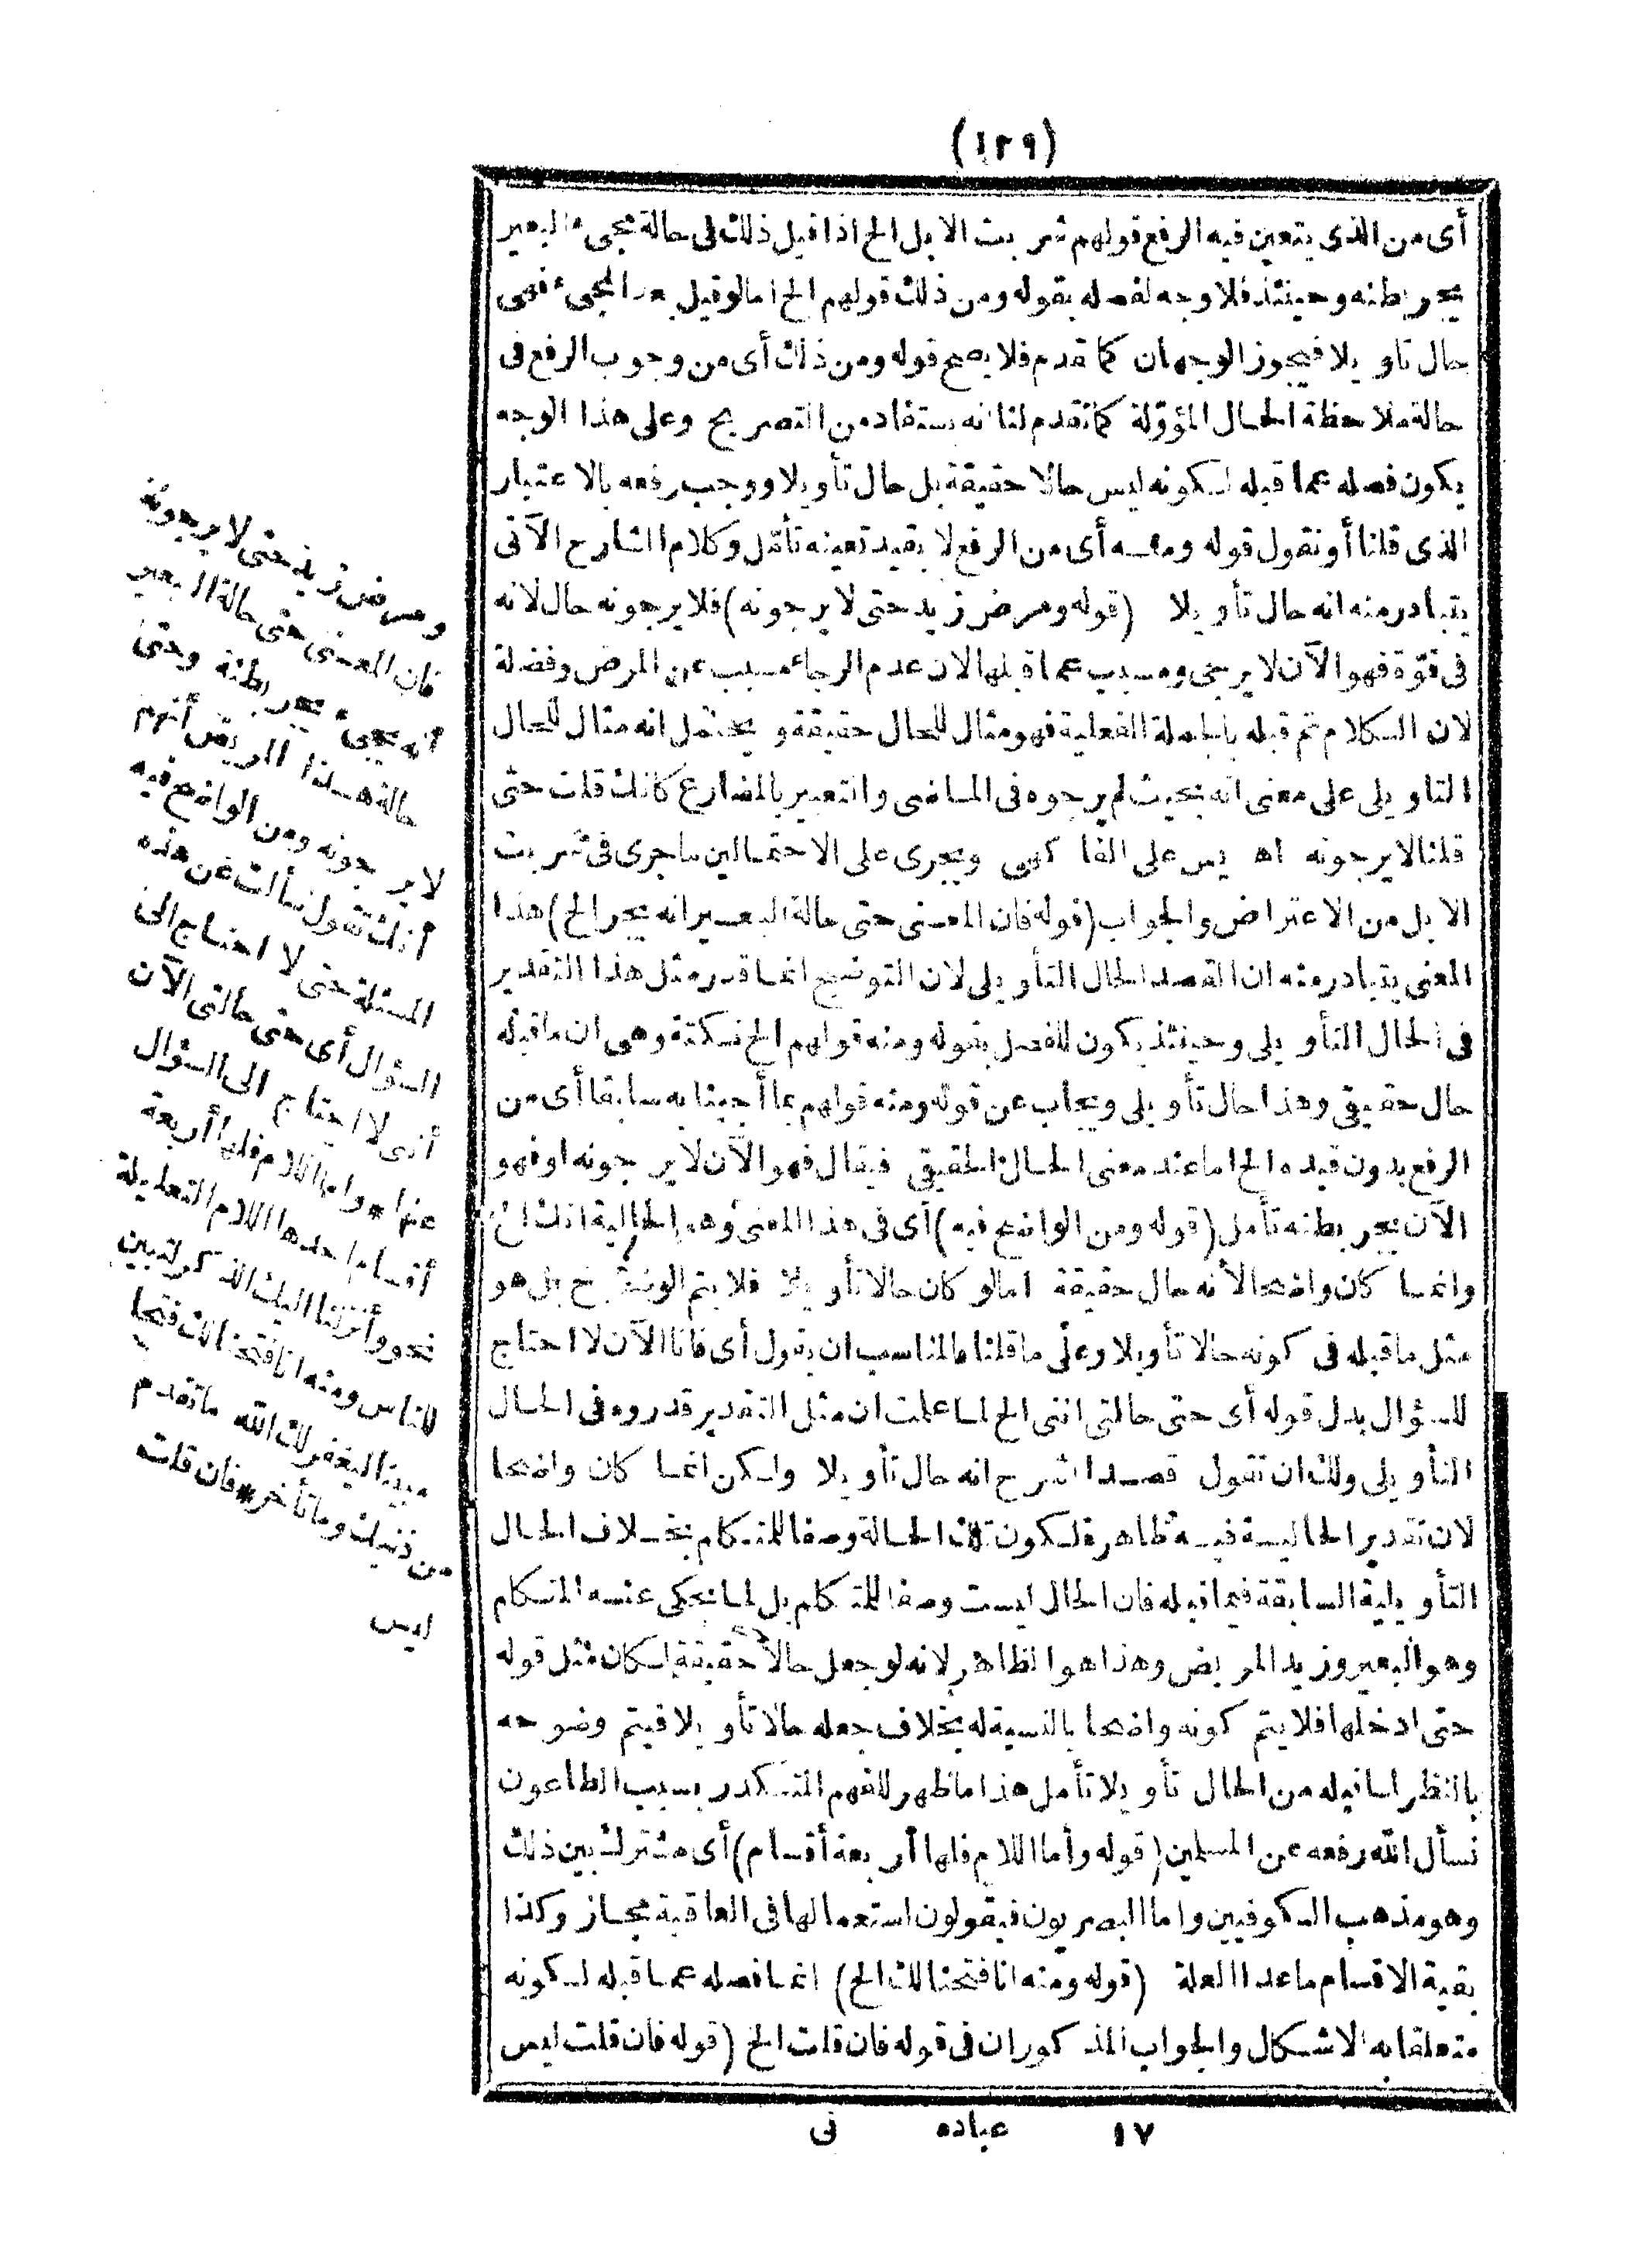 (١٢٩)
أى من الذى يتعين فيه الرفع قولهم شربت الابل الخ اذا قيل ذلك فى حالة مجىء البعير
يجر بطنه وحينئذ فلا وجه لفصله بقوله ومن ذلك قولهم الخ اما لو قيل بعد المجىء فهى
حال تاويلا فيجوز الوجهان كما تقدم فلا يصح قوله ومن ذلك أى من وجوب الرفع فى
حالة ملاحظة الحال المؤوّلة كما تقدم لنا انه يستفاد من التصريح وعلى هذا الوجه
يكون فصله عما قبله لكونه ليس حالا حقيقة بل حال تأويلا ووجب رفعه بالاعتبار
الذى قلنا أو نقول قوله ومنه أى من الرفع لا بقيد تعينه تأمّل وكلام الشارح الآتى
يتبادر منه انه حال تأويلا (قوله ومرض زيد حتى لا يرجونه) فلا يرجونه حال لانه
فى قوّة فهو الآن لا يرجى ومسبب عما قبلها لان عدم الرجاء مسبب عن المرض وفضلة
لان الكلام تم قبله بالجملة الفعلية فهو مثال للحال حقيقة ويحتمل انه مثال للحال
التاويلى على معنى انه بحيث لم يرجوه فى الماضى والتعبير بالمضارع كانك قلت حتى
قلنا لا يرجونه اه يس على الفاكهى ويجرى على الاحتمالين ما جرى فى شربت
الابل من الاعتراض والجواب (قوله فان المعنى حتى حالة البعير انه يجر الخ) هذا
المعنى يتبادر منه ان القصد الحال التأويلى لان التوضيح انما قدر مثل هذا التقدير
فى الحال التأويلى وحينئذ يكون للفصل بقوله ومنه قولهم الخ نكتة وهى ان ما قبله
حال حقيقى وهذا حال تأويلى ويجاب عن قوله ومنه قولهم بما أجبنا به سابقا أى من
الرفع بدون قيده الخ اما عند معنى الحال الحقيقى فيقال فهو الآن لا يرجونه او فهو
الآن يجر بطنه تأمل (قوله ومن الواضح فيه) أى فى هذا المعنى وهو الحالية انك الخ
وانما كان واضحا لأنه حال حقيقة اما لو كان حالا تأويلا فلا يتم الوضوح بل هو
مثل ما قبله فى كونه حالا تأويلا وعلى ما قلنا فالمناسب ان يقول أى فانا الآن لا احتاج
للسؤال بدل قوله أى حتى حالتى اننى الخ لما علمت ان مثل التقدير قدروه فى الحال
التأويلى ولك ان تقول قصد الشرح انه حال تأويلا ولكن انما كان واضحا
لان تقدير الحالية فيه ظاهرة لكون تلك الحالة وصفا للمتكلم بخلاف الحال
التأويلية السابقة فيما قبله فان الحال ليست وصفا للمتكلم بل لما يحكى عنه المتكلم
وهو البعير وزيد المريض وهذا هو الظاهر لانه لو جعل حالا حقيقة لكان مثل قوله
حتى ادخلها فلا يتم كونه واضحا بالنسبة له بخلاف جعله حالا تأويلا فيتم وضوحه
بالنظر لما قبله من الحال تأويلا تأمل هذا ما ظهر للفهم المتكدر بسبب الطاعون
نسأل الله رفعه عن المسلمين (قوله وأما اللام فلها أربعة أقسام) أى مشترك بين ذلك
وهو مذهب الكوفيين واما البصريون فيقولون استعمالها فى العاقبة مجاز وكذا
بقية الاقسام ما عدا العلة (قوله ومنه انا فتحنا لك الخ) انما فصله عما قبله لكونه
متعلقا به الاشكال والجواب المذكوران فى قوله فان قلت الخ (قوله فان قلت ليس
ومرض زيد حتى لا يرجونه
فان المعنى حتى حالة البعير
انه يجىء يجر بطنه وحتى
حالة هذا المريض أنهم
لا يرجونه ومن الواضح فيه
أنك تقول سألت عن هذه
المسئلة حتى لا احتاج الى
السؤال أى حتى حالتى الآن
أننى لا احتاج الى السؤال
عنها * واما اللام فلها أربعة
أقسام احدها اللام التعليلية
نحو وأنزلنا اليك الذكر لتبين
للناس ومنه انا فتحنا لك فتحا
مبينا ليغفر لك الله ما تقدم
من ذنبك وما تأخر * فان قلت
ليس
١٧ عباده نى